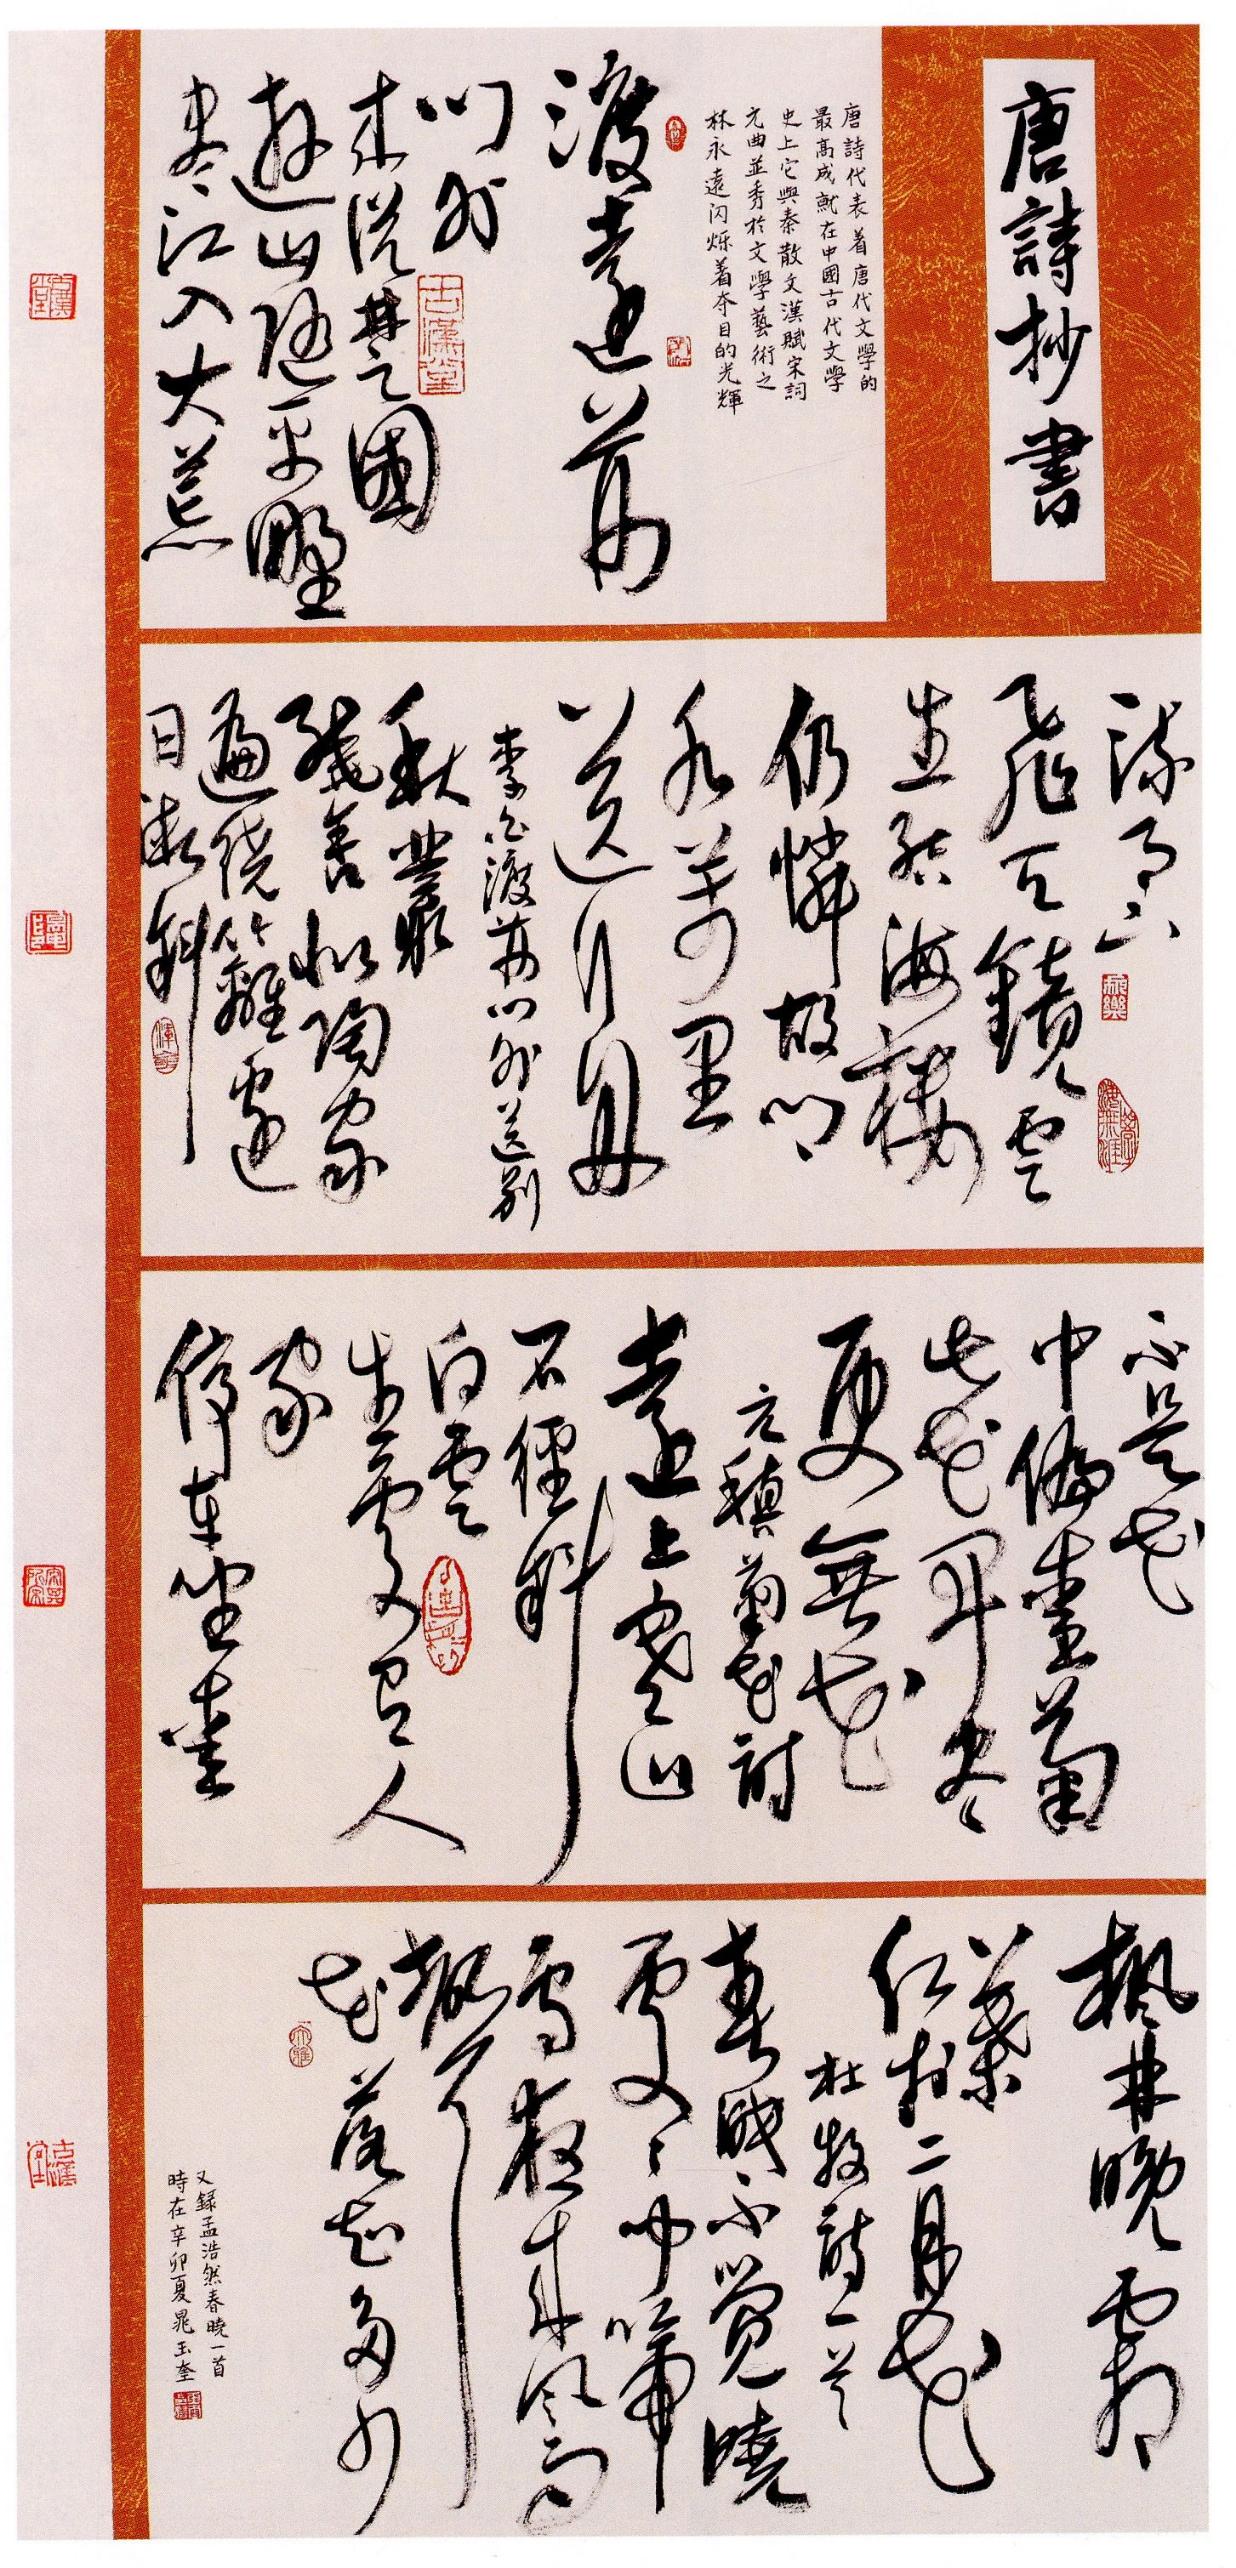 唐詩抄書
唐詩代表着唐代文學的
最高成就在中國古代文學
史上它與秦散文漢賦宋詞
元曲並秀於文學藝術之
林永遠闪烁着夺目的光輝
渡遠荊
门外
来從楚國
遊山随平野
尽江入大荒
古漢堂
流月下
飛天鏡雲
生结海樓
仍憐故鄉
水萬里
送行舟
李白渡荊门外送别
秋叢
绕舍似陶家
遍绕籬邊
日漸斜
不是花
中偏愛菊
此花开尽
更無花
元稹菊花詩
遠上寒山
石徑斜
白雲
生處有人
家
停车坐愛
楓林晚霜
葉
红於二月花
杜牧詩一首
春眠不覺曉
處〻闻啼
鳥夜来風雨
聲
花落知多少
又録孟浩然春曉一首
時在辛卯夏晁玉奎